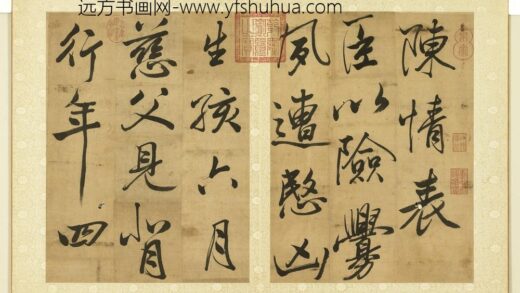 远方书画网-www.yfshuhua.com
陳情表
臣以險釁
夙遭愍凶
生孩六月
慈父見背
行年四